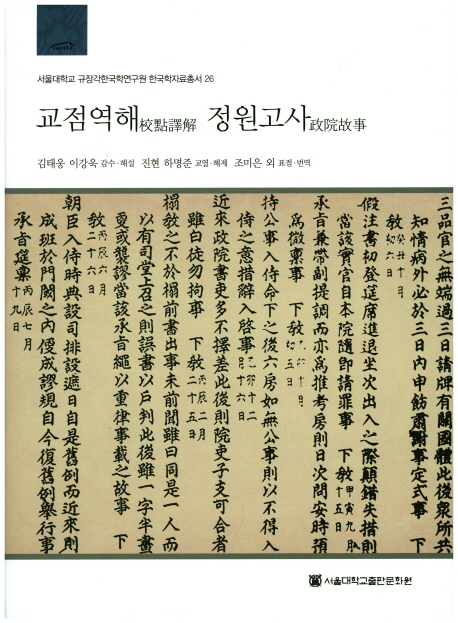 서울대학교 규장각한국학연구원 한국학자료총서 26
교점역해校點譯解 정원고사政院故事
김태웅 이강욱 감수·해설 진현 하명준 교열·해제 조미은 외 표점·번역
三品官之無端過三日請牌有關國體此後衆所共
知情病外必於三日內申飭肅謝事定式事 下
敎 十月初六日
假注書初登筵席進退坐次出入之際顚錯失措則
當該實官自本院隨即請罪事 下敎 甲寅九月十五日
承旨兼帶副提調而亦爲推考房則日次問安時預
爲微稟事 下敎 初五日
持公事入侍命下之後六房如無公事則以不得入
侍之意措辭入啓事
近來政院書吏多不擇差此後則院吏子支可合者
雖白徒勿拘事 下敎 丙辰二月二十五日
榻敎之不於榻前書出事未前聞雖曰同是一人而
以有司堂上召之則誤書以戶判此後雖一字半畫
或襲謬當該承旨繩以重律事載之故事 下
敎 丙辰六月二十六日
朝臣入侍時典設司排設遮日自是舊例而近來則
成班於門閾之內便成謬規自今復舊例擧行事
承旨筵稟 丙辰七月十九日
서울대학교출판문화원